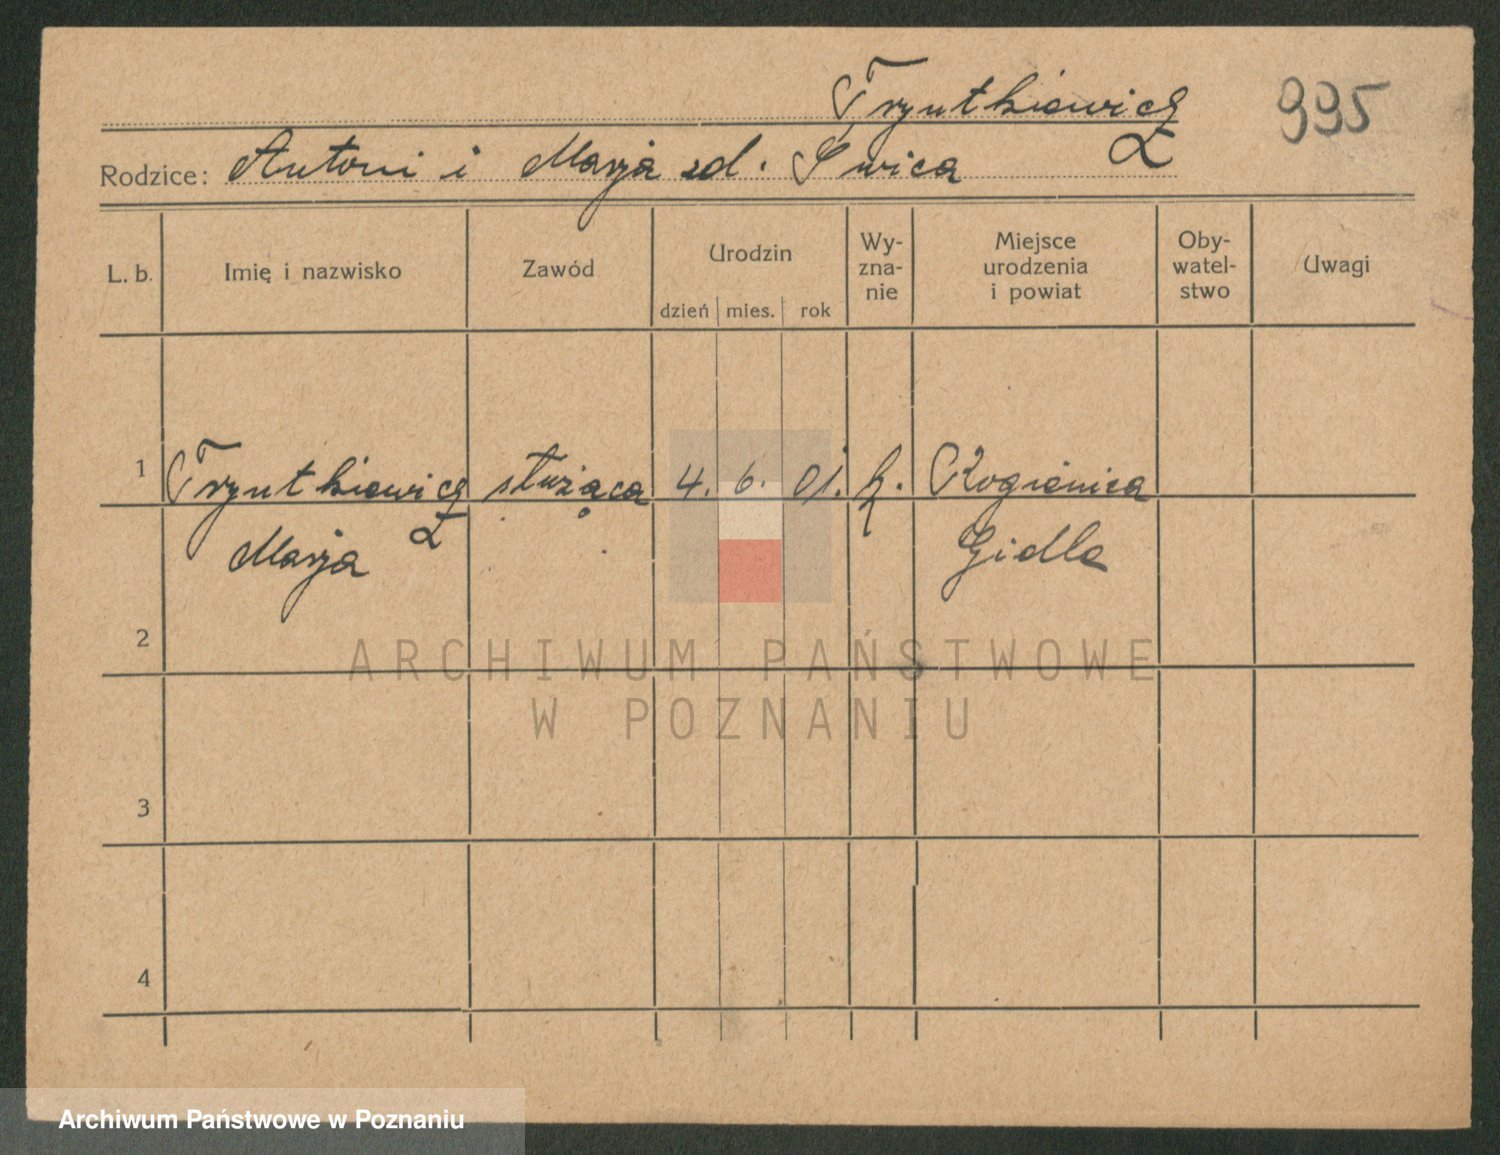 Trytkiewicz 995
Rodzice: Antoni i Marja zd. Świca
L. b. Imię i nazwisko Zawód Urodzin dzień mies. rok Wy-zna-nie Miejsce urodzenia i powiat Oby-watel-stwo Uwagi
1 Trytkiewicz służąca 4. 6. 01. k.
Marja Gidle
2
ARCHIWUM PAŃSTWOWE
W POZNANIU
3
4
Archiwum Państwowe w Poznaniu